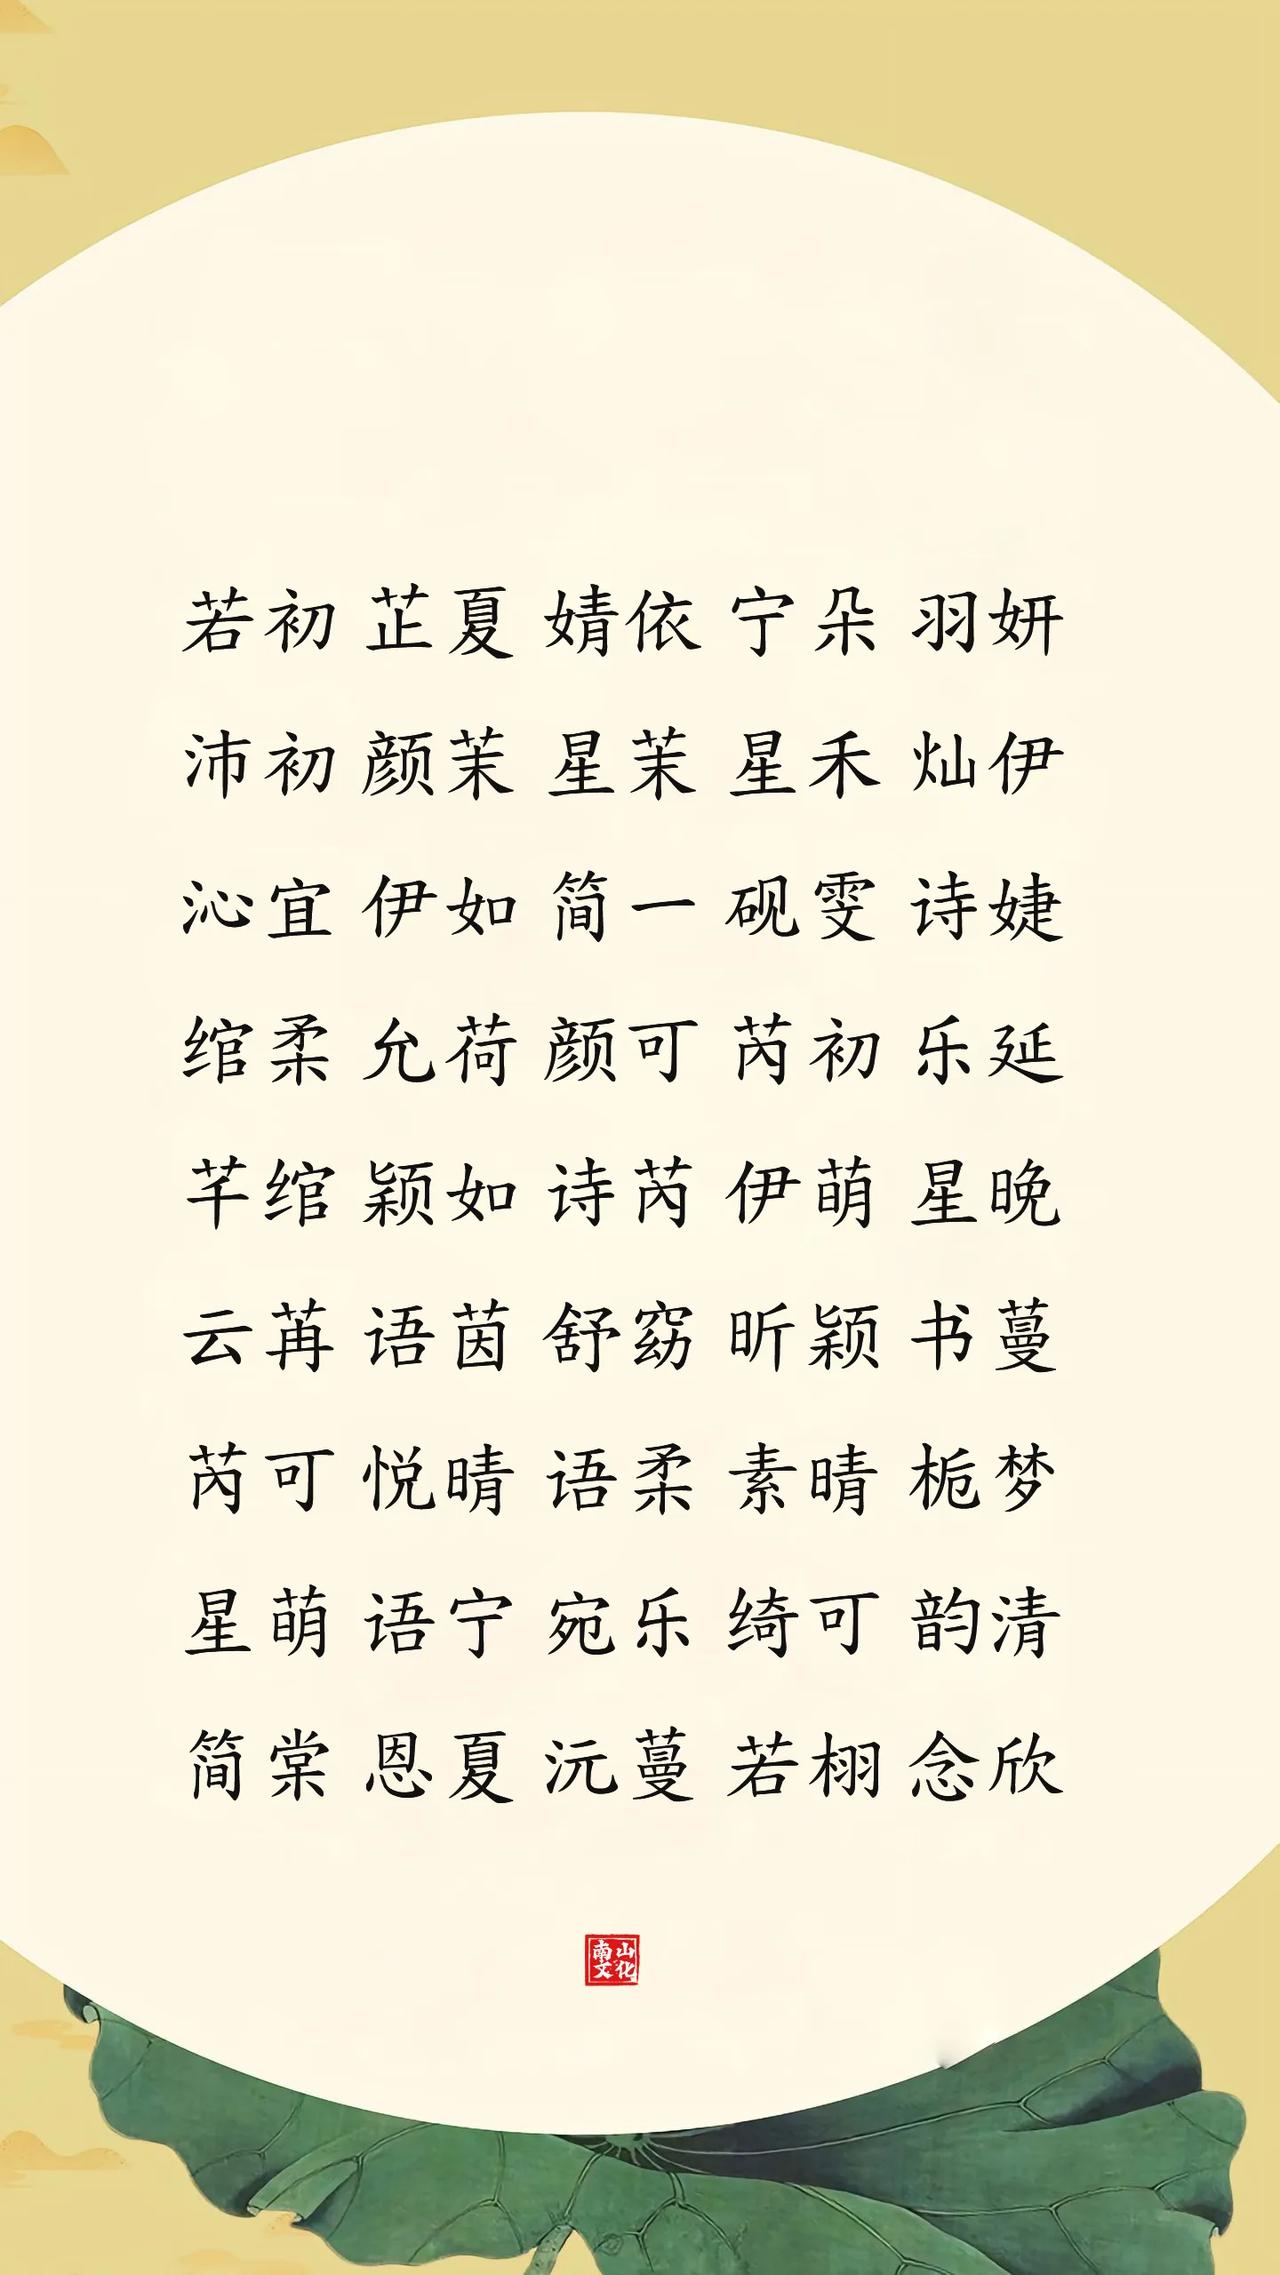 若初 芷夏 婧依 宁朵 羽妍
沛初 颜茉 星茉 星禾 灿伊
沁宜 伊如 简一 砚雯 诗婕
绾柔 允荷 颜可 芮初 乐延
芊绾 颖如 诗芮 伊萌 星晚
云苒 语茵 舒窈 昕颖 书蔓
芮可 悦晴 语柔 素晴 栀梦
星萌 语宁 宛乐 绮可 韵清
简棠 恩夏 沅蔓 若栩 念欣
南山
文化